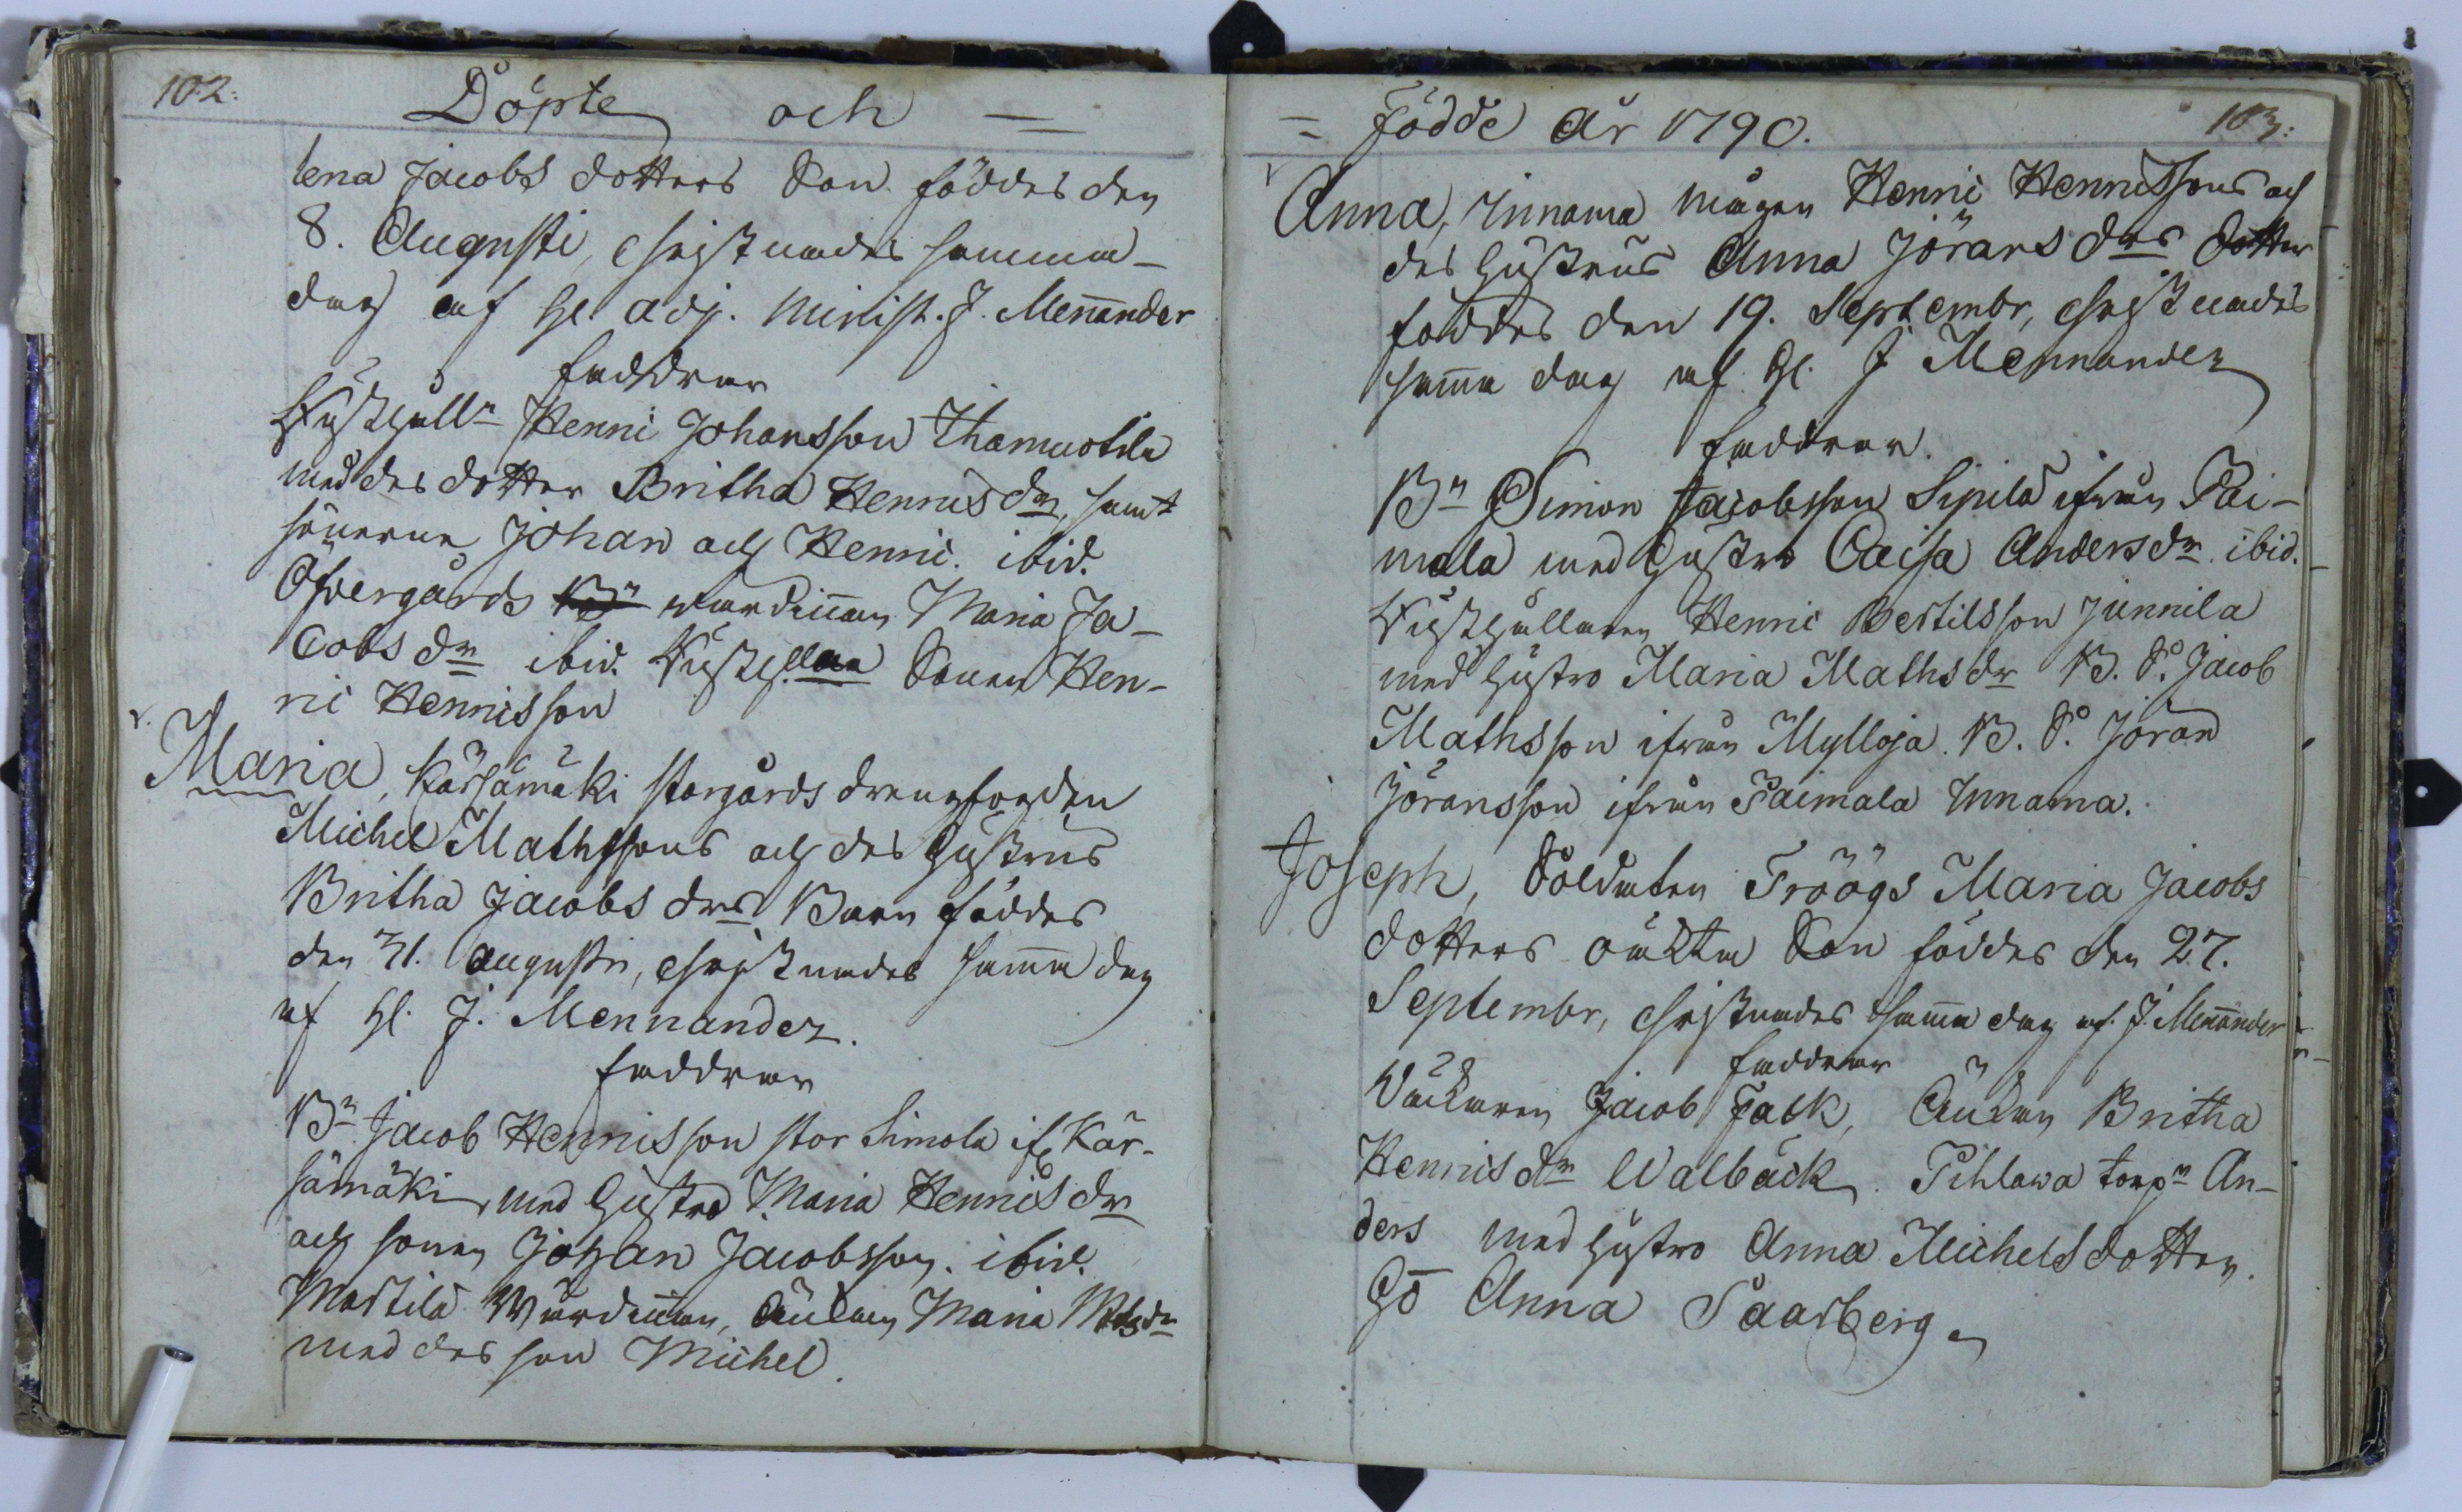 102.
Döpte och =
lena Jacobs dotters Son föddes den
8. Augusti, christnades samma
dag af hl. adj. Minist. J. Meñander
faddrar
Husthålln Henric Johansson Thamuotila
med des dotter Britha Henricsdr, samt
sönerne Johan och Henric. ibid.
Öfvergårds Bn wärdiñan Maria Ja-
cobs dr ibid. Sonen Hen-
ric Henricsson
v. Maria, Kärsämäki storgårds drengfogden
Michel Mathssons och des hustrus
Britha Jacobs drs Barn föddes
den 31. augusti, christnades sam̃a dag
af hl. J. Mennander.
faddrar
Bn Jacob Henricsson stor Simola ifr. Kär-
sämäki, med hustro Maria Henrics dr
och sonen Johan Jacobsson. ibid.
Martila Wärdiñan, Änkan Maria Matsdr
med des son Michel.
= Födde År 1790.
103:
v Anna, Innama mågen Henric Henricssons och
des hustrus Anna Jörans drs dotter
föddes den 19. Septembr, christnades
sam̃a dag af hl. J. Mennander
faddrar.
Bn Simon Jacobsson Sipilä ifrån Pai-
mala med hustro Caisa Andersdr. ibid.
Husthållaren Henric Bertilsson Junnila
med hustro Maria Mathsdr B. So. Jacob
Mathsson ifrån Mylloja. B. So. Jöran
Jöransson ifrån Paimala Innama.
Joseph, Soldaten Fröögs Maria Jacobs
dotters oäkta Son föddes den 27.
Septembr, christnades sam̃a dag af. J. Meñander
faddrar
Jacob Falk, Änkan Britha
Henrics dr Walbäck. Pihlawa torpn An-
ders med hustro Anna Michels dotter.
Ho Anna Saarberg.